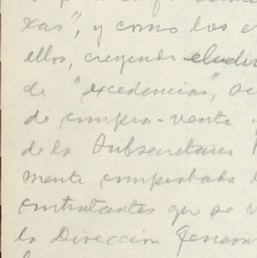 xas", y como los e
ellos, creyendo eludi
de "excedencias", se
de compra-venta y
de la Subsecretaria
mente comprobada l
contratantes que se v
la Dirección General